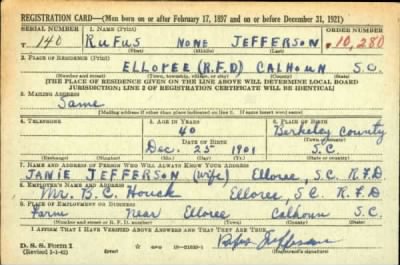 REGISTRATION CARD—(Men born on or after February 17, 1897 and on or before December 31, 1921)
SERIAL NUMBER 1. NAME (Print) ORDER NUMBER
T 140 RUFUS NONE JEFFERSON 10,280
(First) (Middle) (Last)
2. PLACE OF RESIDENCE (Print)
ELLOREE (R.F.D) CALHOUN S.C.
(Number and street) (Town, township, village, or city) (County) (State)
[THE PLACE OF RESIDENCE GIVEN ON THE LINE ABOVE WILL DETERMINE LOCAL BOARD
JURISDICTION; LINE 2 OF REGISTRATION CERTIFICATE WILL BE IDENTICAL]
3. MAILING ADDRESS
Same
[Mailing address if other than place indicated on line 2. If same insert word same]
4. TELEPHONE 5. AGE IN YEARS 6. PLACE OF BIRTH
40 Berkeley County
DATE OF BIRTH (Town or county)
Dec. 25 1901 S.C.
(Exchange) (Number) (Mo.) (Day) (Yr.) (State or country)
7. NAME AND ADDRESS OF PERSON WHO WILL ALWAYS KNOW YOUR ADDRESS
JANIE JEFFERSON (wife) Elloree, S.C. R.F.D
8. EMPLOYER'S NAME AND ADDRESS
Mr. B. C. Houck Elloree, S.C. R.F.D
9. PLACE OF EMPLOYMENT OR BUSINESS
Farm Near Elloree Calhoun S.C.
(Number and street or R. F. D. number) (Town) (County) (State)
I AFFIRM THAT I HAVE VERIFIED ABOVE ANSWERS AND THAT THEY ARE TRUE.
D. S. S. Form 1 Rufus Jefferson
(Revised 1-1-42) (over) (Registrant's signature)